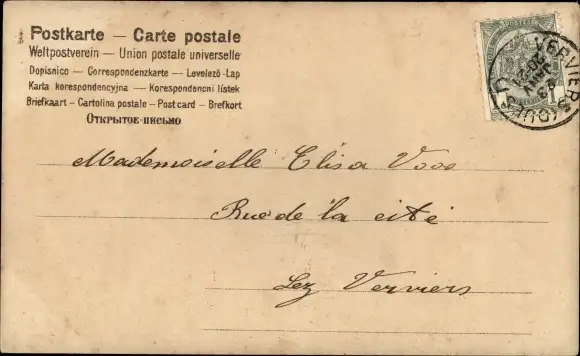 Postkarte — Carte postale
Weltpostverein — Union postale universelle
Dopisnice — Correspondenzkarte — Levelező-Lap
Karta korespondencyjna — Korespondencni lístek
Briefkaart — Cartolina postale — Post card — Brefkort
Открытое-письмо
VERVIERS (OUEST)
Mademoiselle Elisa Voos
Rue de la cité
Lez Verviers